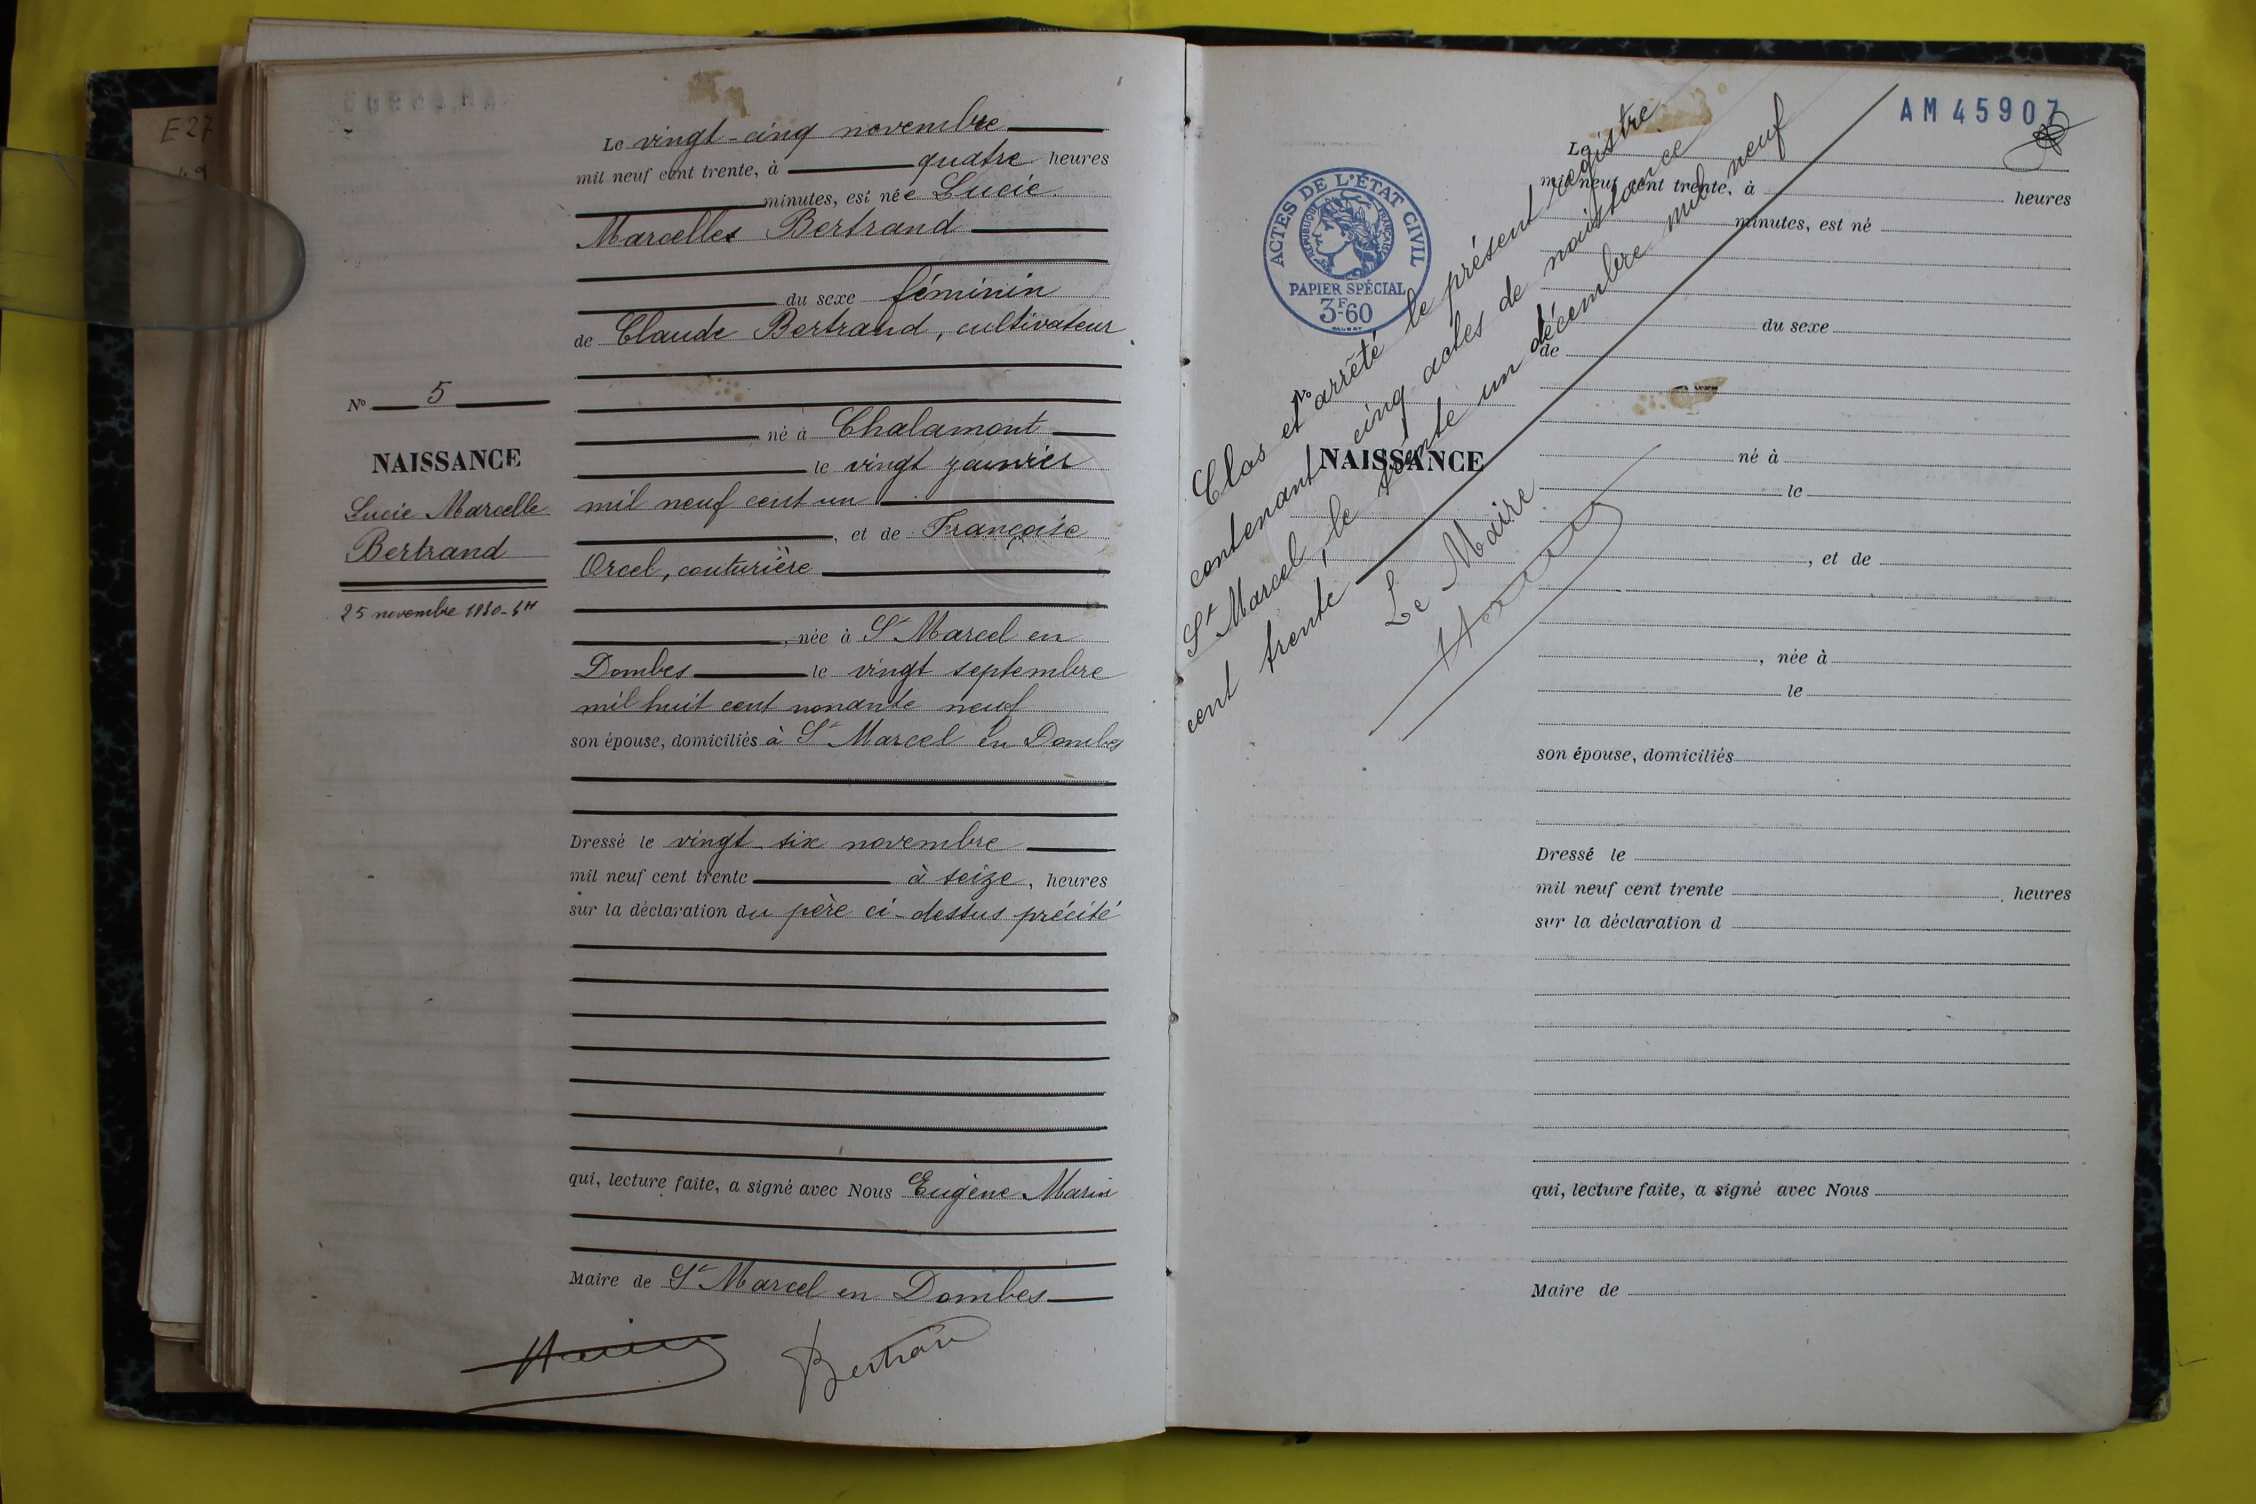 E27
Le vingt-cinq novembre
mil neuf cent trente, à quatre heures
minutes, est née Lucie
Marcelles Bertrand
du sexe féminin
de Claude Bertrand, cultivateur
né à Chalamont
le vingt janvier
mil neuf cent un
, et de Françoise
Orcel, couturière
, née à St Marcel en
Dombes le vingt septembre
mil huit cent nonante neuf
son épouse, domiciliés à St Marcel en Dombes
Dressé le vingt-six novembre
mil neuf cent trente à seize, heures
sur la déclaration du père ci-dessus précité
qui, lecture faite, a signé avec Nous Eugène Marin
Maire de St Marcel en Dombes
Bertran
No 5
NAISSANCE
Lucie Marcelle
Bertrand
25 novembre
AM 45907
ACTES DE L'ÉTAT CIVIL
RÉPUBLIQUE FRANÇAISE
PAPIER SPÉCIAL
3F-60
Clos et arrêté le présent registre
contenant cinq actes de naissance
St Marcel, le trente un décembre mil neuf
cent trente
Le Maire
No
NAISSANCE
Le
mil neuf cent trente, à heures
minutes, est né
du sexe
de
né à
le
, et de
, née à
le
son épouse, domiciliés
Dressé le
mil neuf cent trente , heures
sur la déclaration d
qui, lecture faite, a signé avec Nous
Maire de